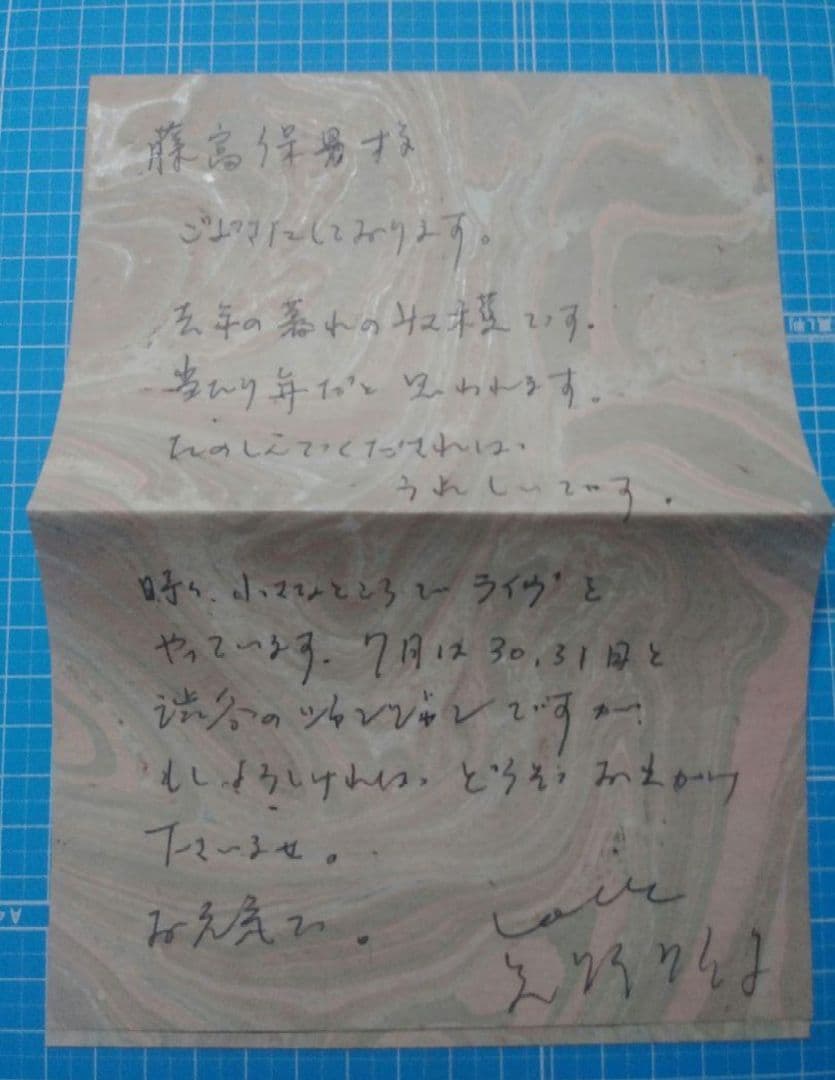 藤高保男さま
ごぶさたしております。
去年の暮れの収穫です。
当たり年だと思われます。
たのしんでくだされば、
うれしいです。
時々、小さなところでライヴを
やっています。7月は30,31日と
渋谷の
ですが、
もしよろしければ、どうぞ、おでかけ
下さいませ。
お元気で。
love
矢野